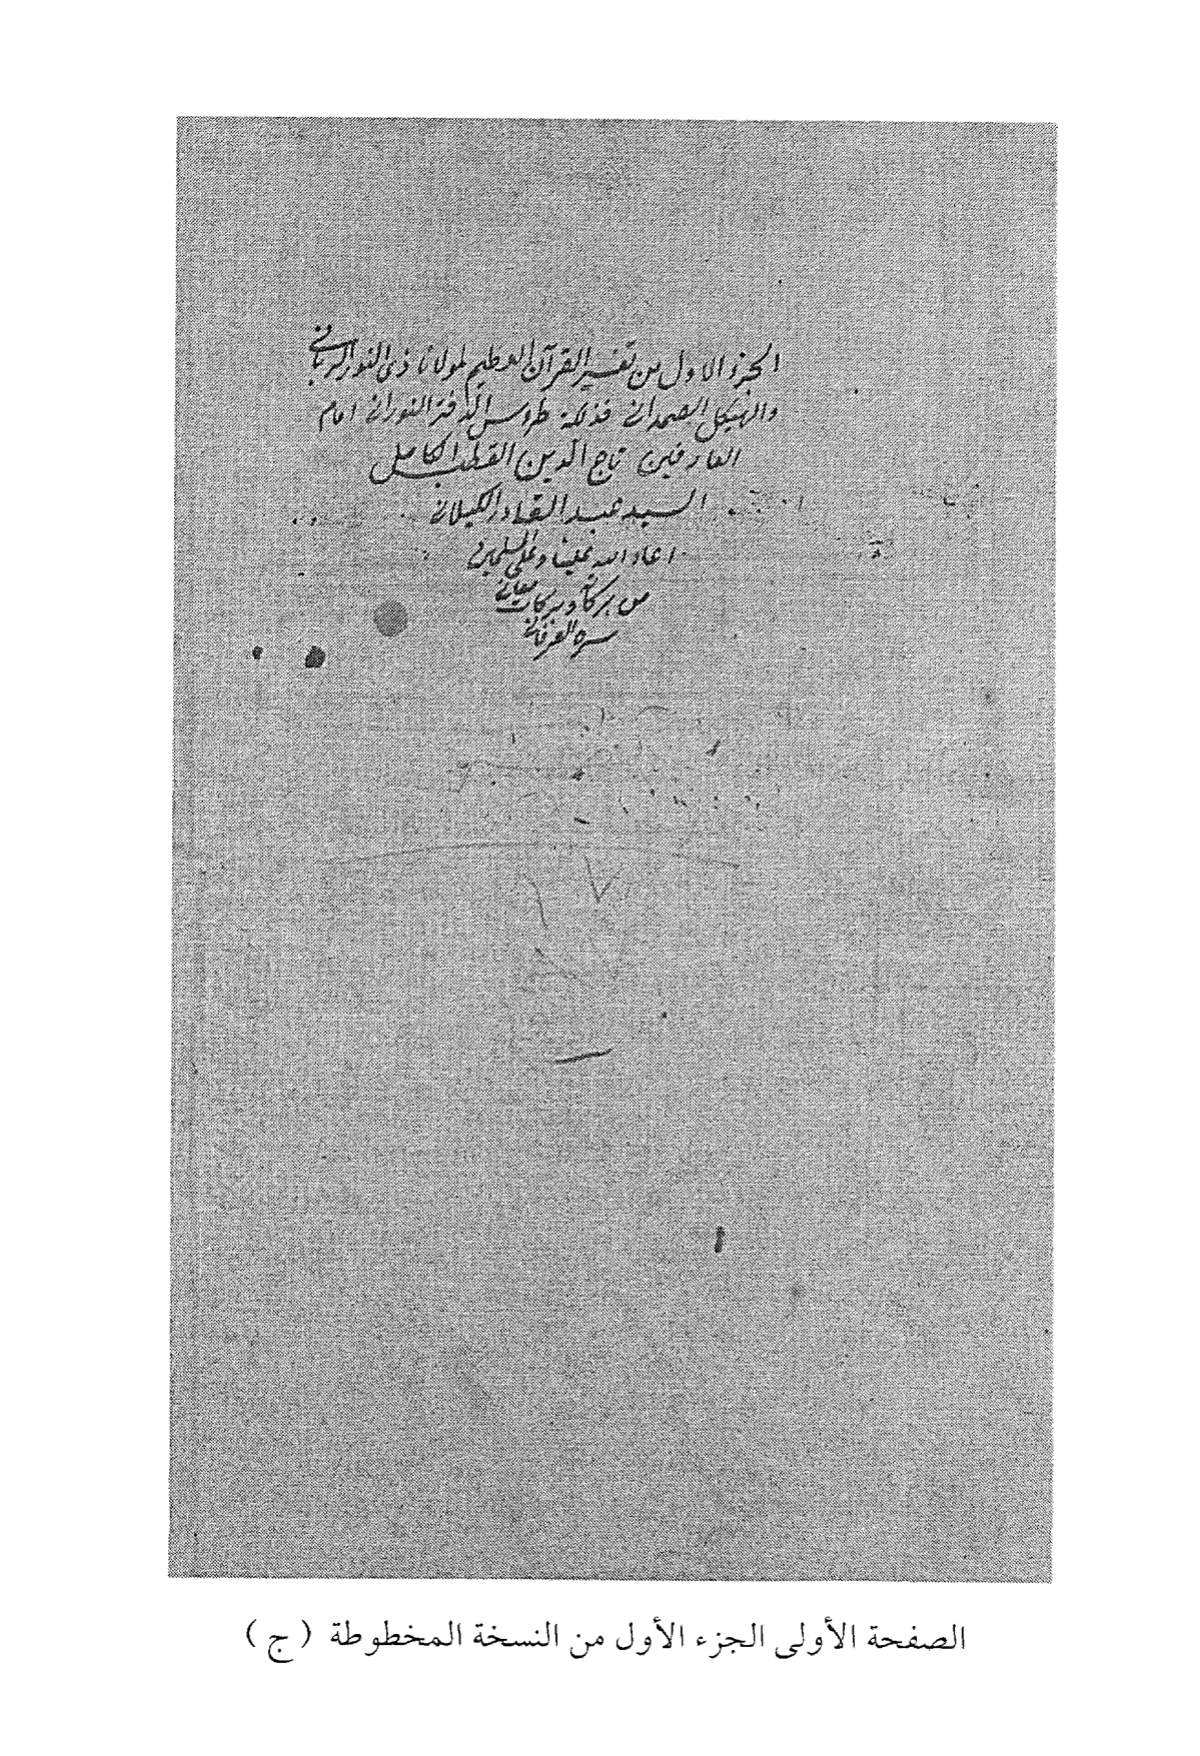 الجزء الاول من تفسير القرآن العظيم لمولانا ذى النور الربانى
والهيكل الصمدانى فذلكة طروس الدفتر النورانى امام
العارفين تاج الدين القطب الكامل
السيد عبد القادر الكيلانى
اعاد الله علينا وعلى المسلمين
من بركاته وبركات معانى
سره العرفانى
الصفحة الأولى الجزء الأول من النسخة المخطوطة ( ج )